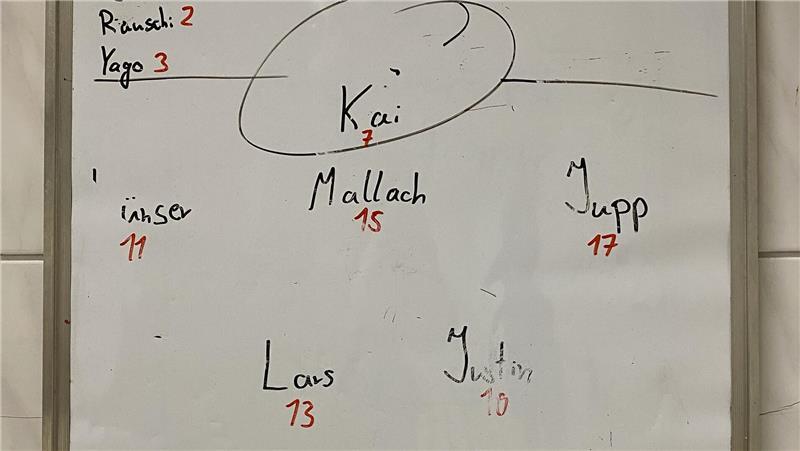 Rauschi 2
Yago 3
Kai
7
Mallach
15
Jupp
17
11
Lars
13
Justin